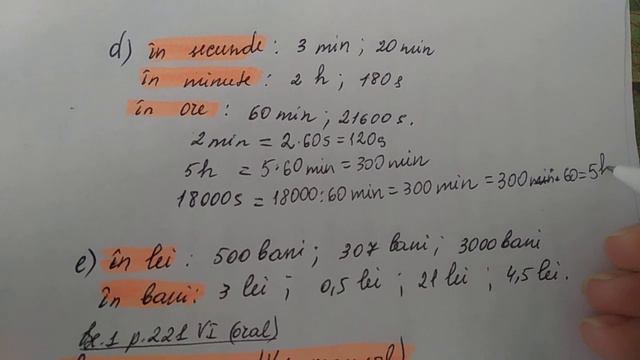 d) în secunde: 3 min; 20 min
în minute: 2 h; 180s
în ore: 60 min; 21600 s.
2 min = 2·60s = 120s
5h = 5·60 min = 300 min
18000s = 18000:60 min = 300 min = 300 min:60 = 5h
e) în lei: 500 bani; 307 bani; 3000 bani
în bani: 3 lei; 0,5 lei; 21 lei; 4,5 lei.
Ex.1 p.221 VI (oral)